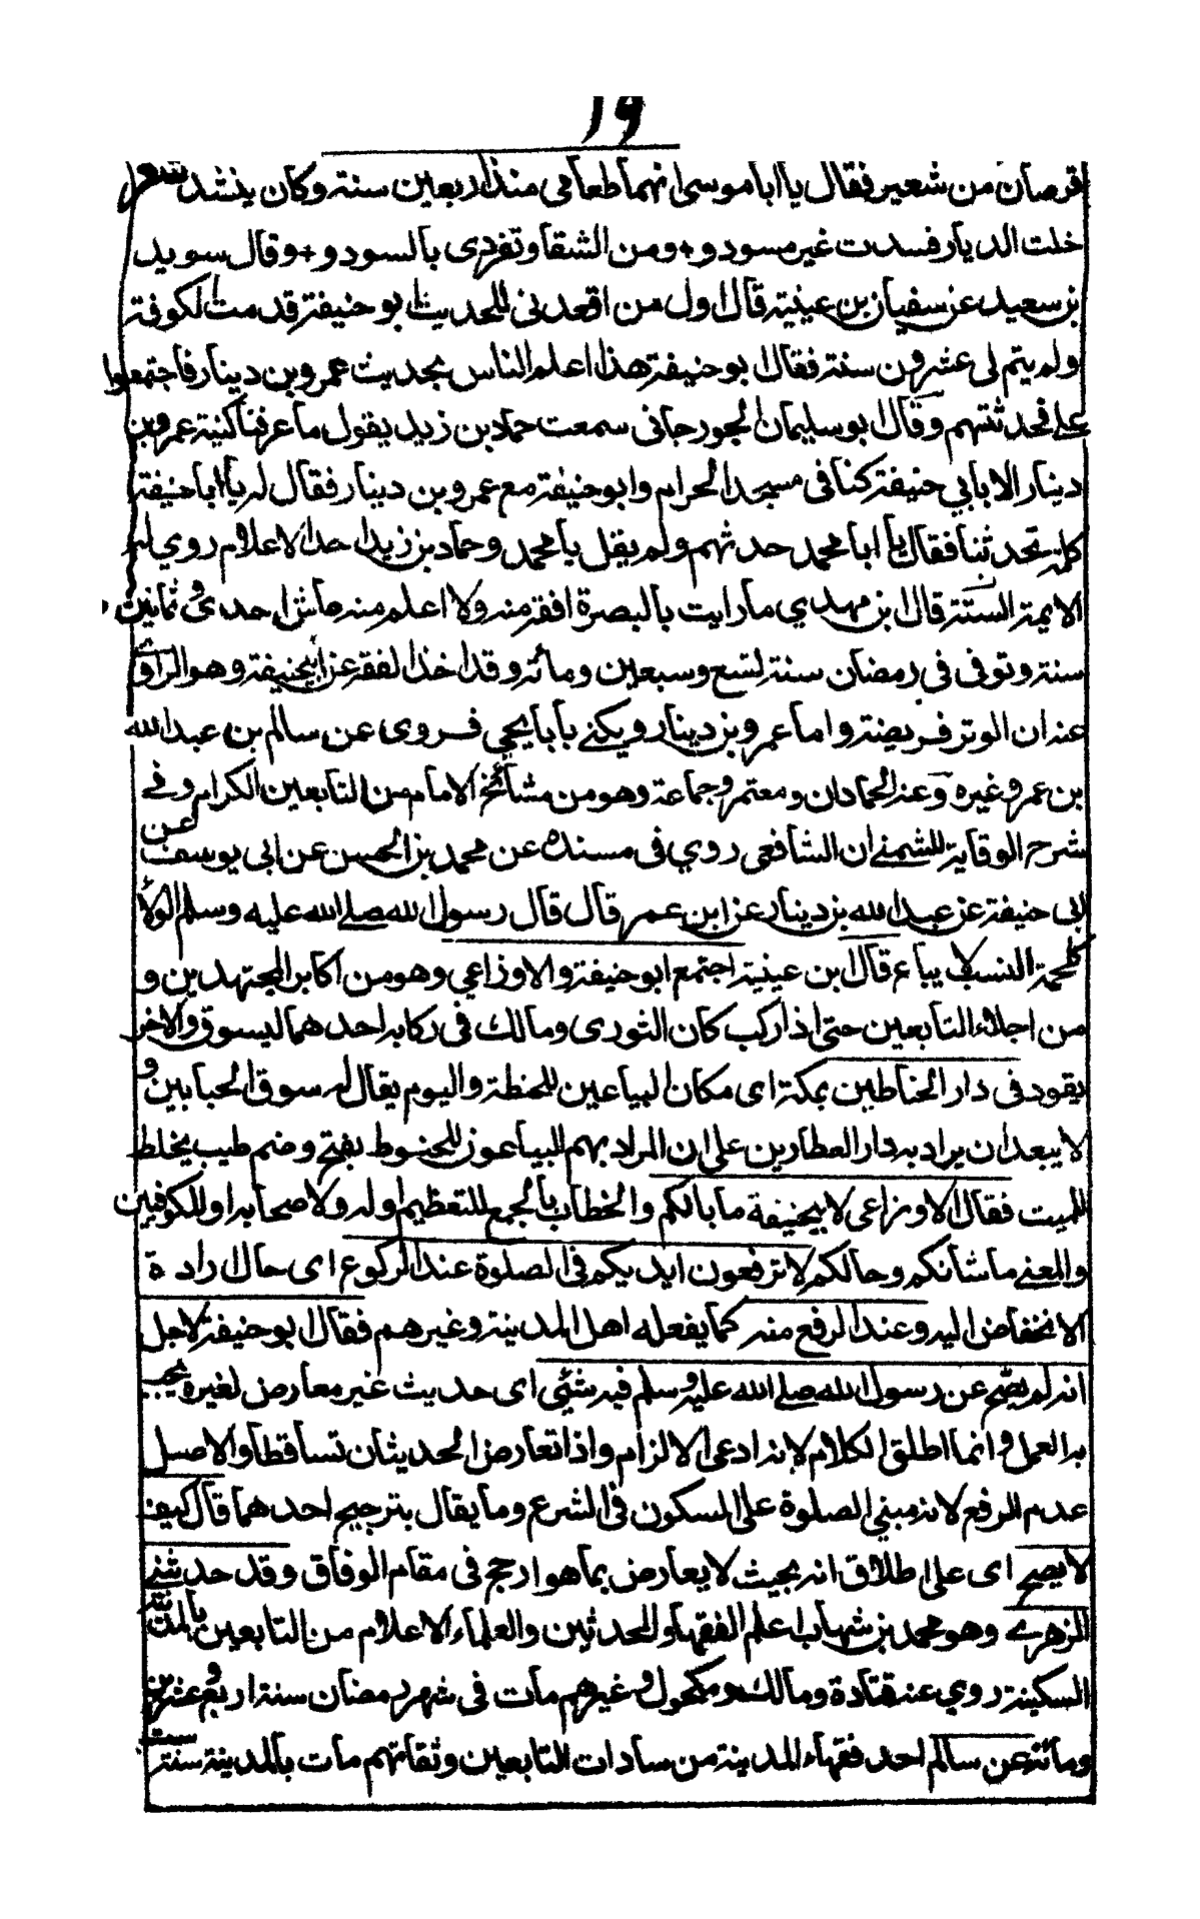 ١٩
قرصان من شعير فقال يا ابا موسى انهما طعامى منذ اربعين سنة وكان ينشد شعر
خلت الديار فسدت غير مسود و+ومن الشقاء تفردى بالسودد+وقال سويد
بن سعيد عن سفيان بن عيينة قال اول من اقعدنى للحديث ابو حنيفة قدمت الكوفة
ولم يتم لى عشرون سنة فقال ابو حنيفة هذا اعلم الناس بحديث عمرو بن دينار فاجتمعوا
على فحدثتهم وقال ابو سليمان الجورجانى سمعت حماد بن زيد يقول ما عرفنا كنية عمرو بن
دينار الا بابي حنيفة كنا فى مسجد الحرام وابو حنيفة مع عمرو بن دينار فقال له يا ابا حنيفة
كلمة تحدثنا فقال يا ابا محمد حدثهم ولم يقل يا محمد وحماد بن زيد احد الاعلام روي له
الايمة الستة قال ابن مهدي ما رايت بالبصرة افقه منه ولا اعلم منه عاش احدى وثمانين
سنة وتوفى فى رمضان سنة لتسع وسبعين ومائة وقد اخذ الفقه عن ابيحنيفة وهو الراوى
عنه ان الوتر فريضة واما عمرو بن دينار ويكنى بابا يحيى فروى عن سالم بن عبد الله
بن عمر وغيره وعنه الحمادان ومعتمر وجماعة وهو من مشائخ الامام من التابعين الكرام وفى
شرح الوقاية للشمنى ان الشافعى روي فى مسنده عن محمد بن الحسن عن ابى يوسف عن
ابى حنيفة عن عبد الله بن دينار عن ابن عمر قال قال رسول الله صلى الله عليه وسلم الولاء
كلحمة النسب لا يباع قال ابن عيينة اجتمع ابو حنيفة والاوزاعي وهو من اكابر المجتهدين و
من اجلاء التابعين حتى اذا ركب كان الثورى ومالك فى ركابه احدهما ليسوق والاخر
يقود فى دار الحناطين بمكة اى مكان البياعين للحنطة واليوم يقال له سوق الحبابين و
لا يبعد ان يراد به دار العطارين على ان المراد بهم البياعون للحنوط بفتح وضم طيب يخلط
للميت فقال الاوزاعى لابيحنيفة ما بالكم والخطاب بالجمع للتعظيم اوله ولاصحابه او للكوفين
والمعنى ما شانكم وحالكم لا ترفعون ايديكم فى الصلوة عند الركوع اى حال ارادة
الانخفاض اليه وعند الرفع منه كما يفعله اهل المدينة وغيرهم فقال ابو حنيفة لاجل
انه لم يصح عن رسول الله صلى الله عليه وسلم فيه شئى اى حديث غير معارض لغيره يجب
به العمل وانما اطلق الكلام لانه ادعى الالزام واذا تعارض الحديثان تساقطا والاصل
عدم الرفع لانه مبنى الصلوة على السكون فى الشرع وما يقال بترجيح احدهما قال كيف
لا يصح اى على اطلاق انه بحيث لا يعارض بما هو ارجح فى مقام الوفاق وقد حدثنى
الزهرى وهو محمد بن شهاب اعلم الفقهاء والمحدثين والعلماء الاعلام من التابعين بالمدينة
السكينة روي عنه قتادة ومالك ومكحول وغيرهم مات فى شهر رمضان سنة اربع وعشرين
ومائة عن سالم احد فقهاء المدينة من سادات التابعين وثقاتهم مات بالمدينة سنة ست